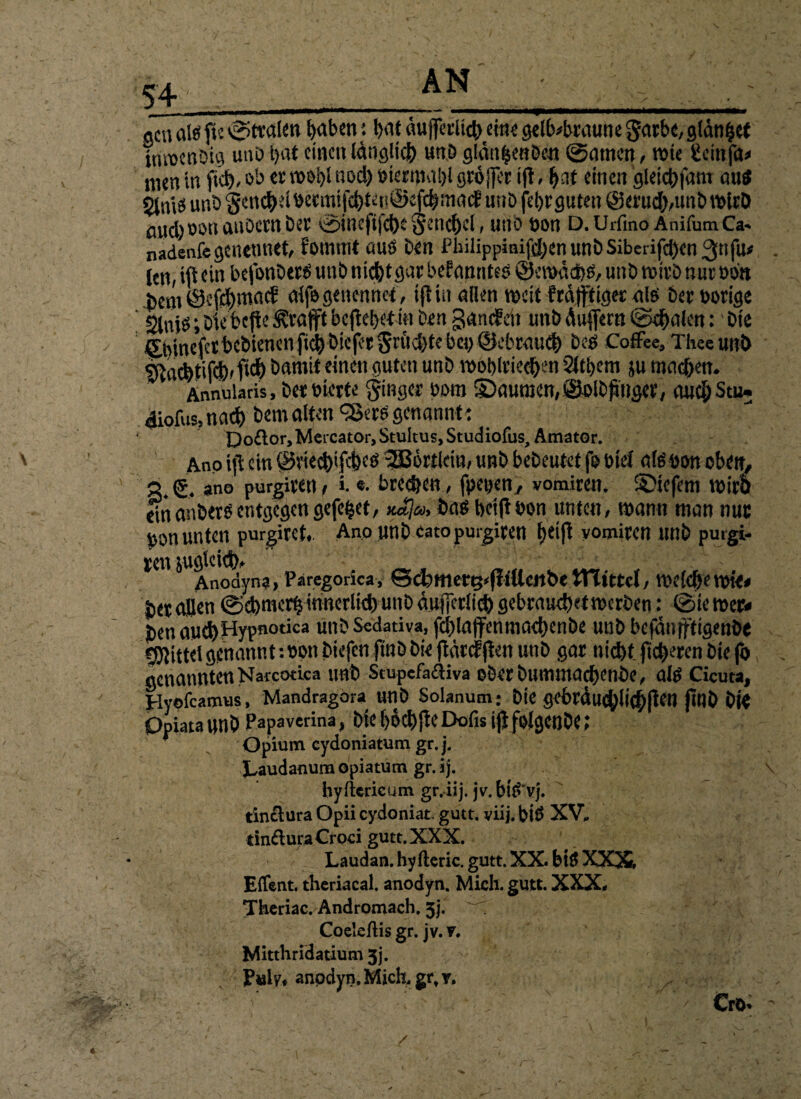 54 AN
gen als sie Stralen haben: hat äusserlich eine gelb-braune Farbe, gläntzet
inwendig und hat einen länglich und gläntzenden Samen, wie Leinsa-
men in sich, ob er wohl noch viermahl grösser ist, hat einen gleichsam aus
Anis und Fenchel vermischten Geschmack und sehr guten Geruch, und wird
auch von andern der Sinesische Fenchel, und von D. Ursino Anisum Ca-
nadense genennet, kommt aus den Philippinischen und Siberischen Insu-
len, ist ein besonders und nicht gar bekanntes Gewächs, und wird nur von
dem Geschmack also genennet, ist in allen weit kräfftiger als der vorige
Anis; die beste Krafft bestehet in den Zancken und äussern Schalen: die
Chineser bedienen sich dieser Früchte bey Gebrauch des Coffee, Thee und
Nachtisch, sich damit einen guten und wohlriechen Athem zu machen.
Annularis, der vierte Finger vom Daumen, Goldfinger, auch Stu-
diosus, nach dem alten Vers genannt:
Doctor, Mercator, Stultus, Studiosus, Amator.
Ano ist ein Griechisches Wörtlein, und bedeutet so viel als von oben,
Z. E. ano purgiren, i. e. brechen, speyen, vomiren. Diesem wird
ein anders entgegen gesetzet, κάτω, das heist von unten, wann man nur
von unten purgiret. Ano und cato purgiren heist vomiren und purgi-
ren zugleich.
Anodyna, Paregorica, Schmertz-stillende Mittel, welche wie-
der allen Schmertz innerlich und äusserlich gebrauchet werden: Sie wer-
den auch Hypnotica und Sedativa, schlaffenmachende und besänfftigende
Mittel genannt: von diesen sind die stärcksten und gar nicht sicheren die so
genannten Narcotica und Stupefactiva oder dummachende, als Cicuta,
Hyoscamus, Mandragora und Solanum: die gebräuchlichsten sind die
Opiata und Papaverina, die höchste Dosis ist folgende:
Opium cydoniatum gr. j.
Laudanum opiatum gr. ij.
hystericum gr. iij. jv. bis vj.
tinctura Opii cydoniat. gutt. viij. bis XV.
tinctura Croci gutt. XXX.
Laudan. hysteric. gutt. XX. bis XXX.
Essent. theriacal. anodyn. Mich. gutt. XXX.
Theriac. Andromach. ʒj.
Coelestis gr. jv. v.
Mitthridatium ʒj.
Pulv. anodyn. Mich. gr. v.
Cro-